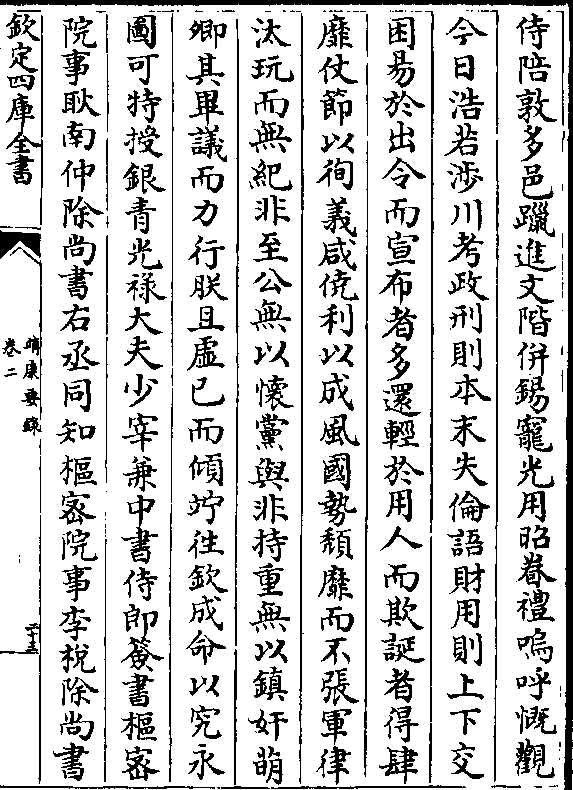 侍陪敦多邑躐進文階併錫寵光用昭眷禮嗚呼慨觀
今日浩若涉川考政刑則本末失倫語財用則上下交
困易於出令而宣布者多還輕於用人而欺誕者得肆
靡仗節以徇義咸僥利以成風國勢頽靡而不張軍律
汰玩而無紀非至公無以懷黨與非持重無以鎮奸萌
卿其畢議而力行朕且虚已而傾竚徃欽成命以究永
圖可特授銀青光禄大夫少宰兼中書侍郎簽書樞密
院事耿南仲除尚書右丞同知樞密院事李梲除尚書
欽定四庫全書
靖康要錄
卷二
二十三